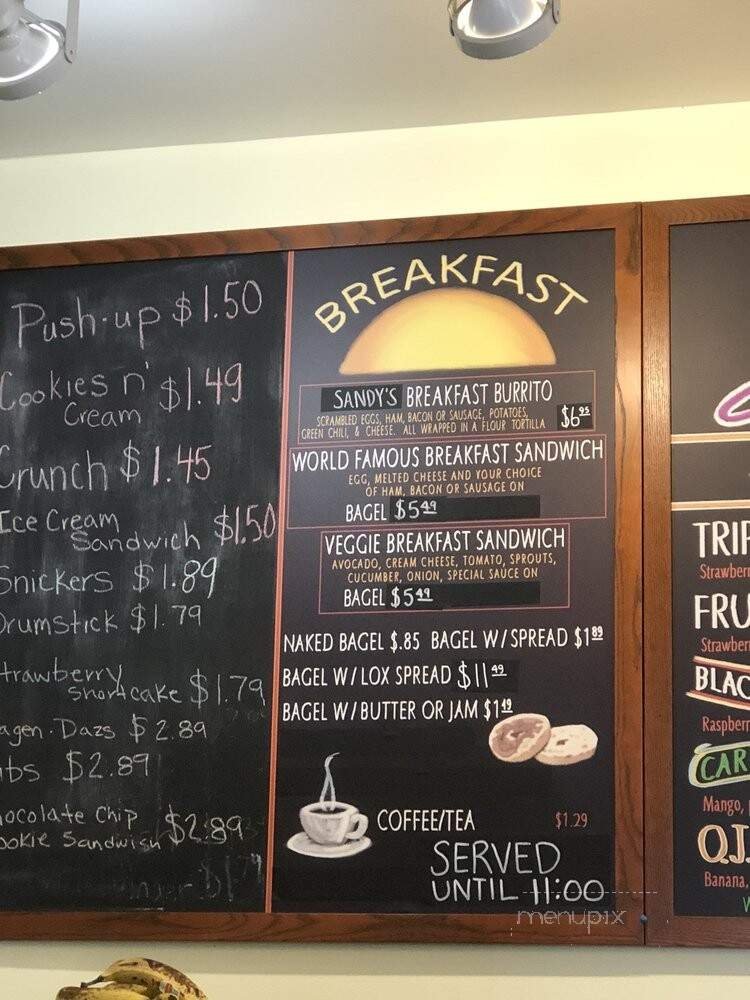 Push-up $1.50
Cookies n' $1.49
Cream
Crunch $1.45
Ice Cream
Sandwich $1.50
Snickers $1.89
Drumstick $1.79
trawberry
shortcake $1.79
agen-Dazs $2.89
bs $2.89
hocolate Chip
ookie Sandwish $2.89
BREAKFAST
SANDY'S BREAKFAST BURRITO
SCRAMBLED EGGS, HAM, BACON OR SAUSAGE, POTATOES, $6.95
GREEN CHILI, & CHEESE. ALL WRAPPED IN A FLOUR TORTILLA
WORLD FAMOUS BREAKFAST SANDWICH
EGG, MELTED CHEESE AND YOUR CHOICE
OF HAM, BACON OR SAUSAGE ON
BAGEL $5.49
VEGGIE BREAKFAST SANDWICH
AVOCADO, CREAM CHEESE, TOMATO, SPROUTS,
CUCUMBER, ONION, SPECIAL SAUCE ON
BAGEL $5.49
NAKED BAGEL $.85 BAGEL W/SPREAD $1.89
BAGEL W/LOX SPREAD $11.49
BAGEL W/BUTTER OR JAM $1.49
COFFEE/TEA $1.29
SERVED
UNTIL 11:00
menupix
TRIP
Strawberr
FRU
Strawberr
BLAC
Raspberr
CAR
Mango,
Banana,